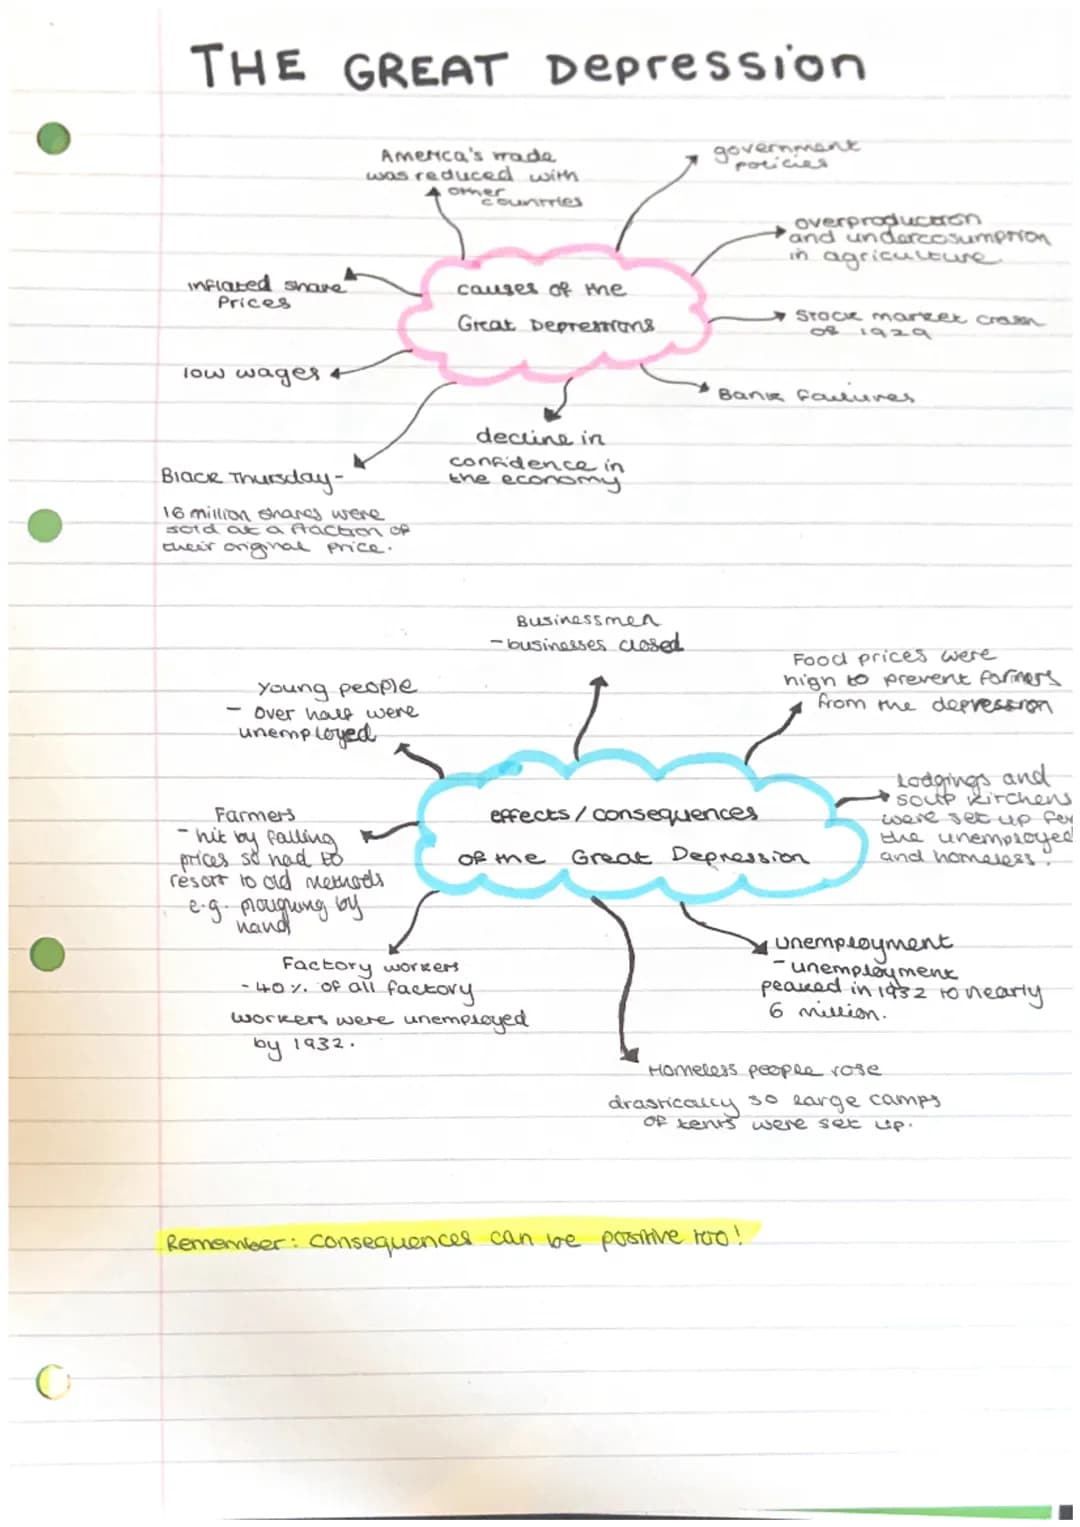 THE GREAT Depression
America's trade
was reduced with
other
countries
government
policies
overproduction
and undercosumption
in agriculture
inflated share
Prices
causes of the
Great Depressions
Stock market crash
of 1929
low wages
Bank failures
decline in
confidence in
the economy
Black Thursday-
16 million shares were
sold at a fraction of
their original price.
Businessmen
- businesses closed
Food prices were
high to prevent farmers
from the depression
young people
- over half were
unemployed
lodgings and
soup kitchens
were set up for
the unemployed
and homeless.
effects/consequences
of the Great Depression
Farmers
- hit by falling
prices so had to
resort to old methods
e.g. ploughing by
hand
Factory workers
- 40% of all factory
workers were unemployed
by 1932.
unemployment
- unemployment
peaked in 1932 to nearly
6 million.
Homeless people rose
drastically so large camps
of tents were set up.
Remember: consequences can be positive too!